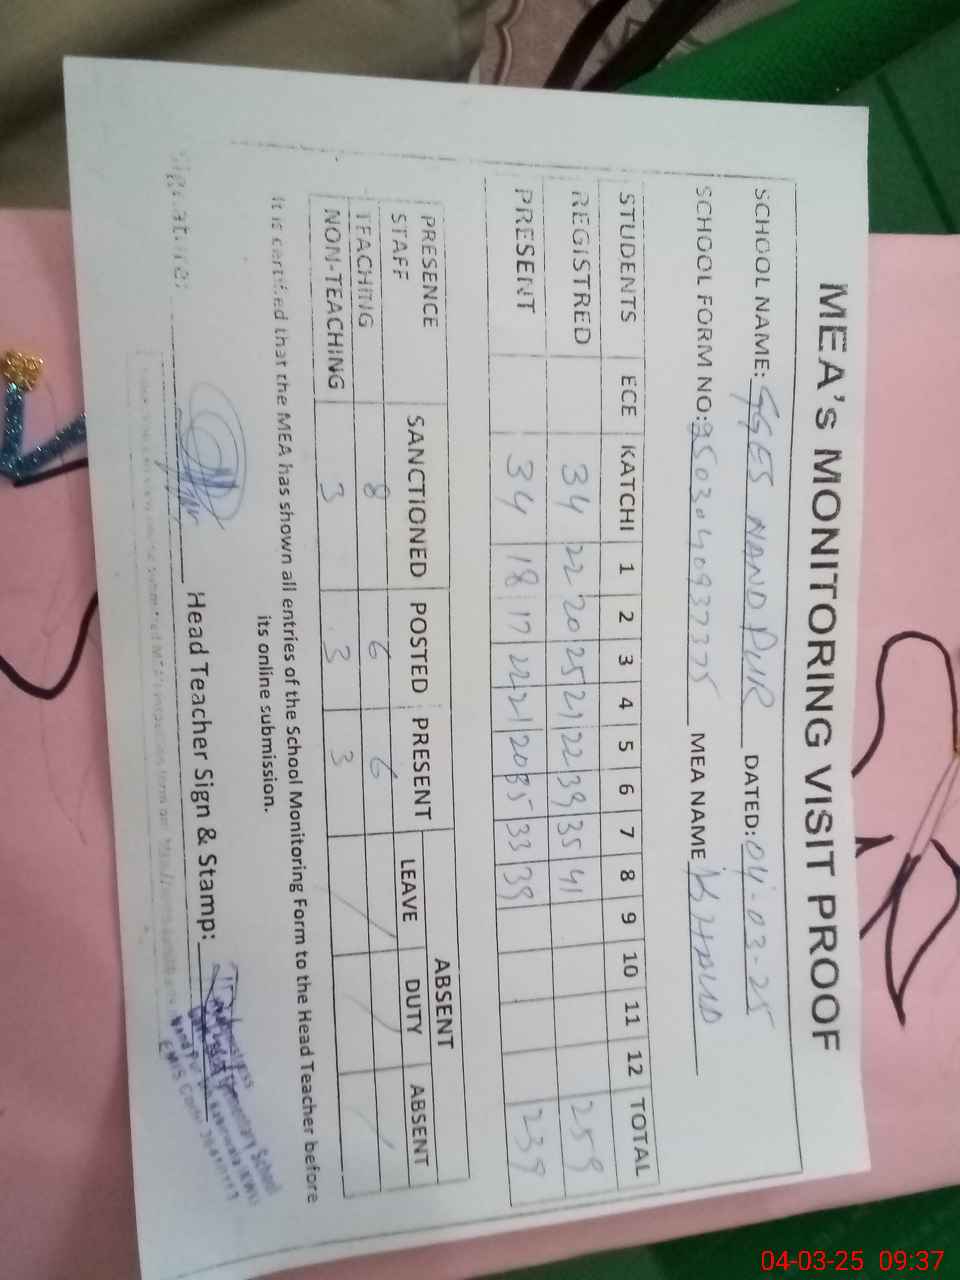 MEA's MONITORING VISIT PROOF
SCHOOL NAME: GGES NAND PUR DATED: 04-03-25
SCHOOL FORM NO: MEA NAME KHALID
STUDENTS ECE KATCHI 1 2 3 4 5 6 7 8 9 10 11 12 TOTAL
REGISTRED 34 22 20 25 21 22 39 35 41 259
PRESENT 34 18 17 22 21 20 35 33 39 239
PRESENCE SANCTIONED POSTED PRESENT ABSENT
STAFF LEAVE DUTY ABSENT
TEACHING 8 6 6 / / /
NON-TEACHING 3 3 3
It is certified that the MEA has shown all entries of the School Monitoring Form to the Head Teacher before
its online submission.
Signature: Head Teacher Sign & Stamp:
Elementary School
Nand Pur
EMIS
04-03-25 09:37